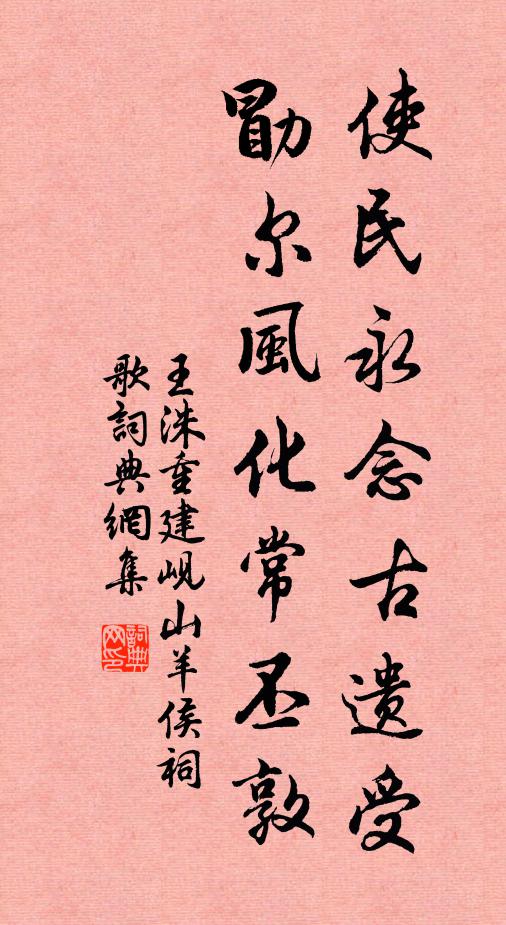 使民永念古遗受
勖尔風化常丕敦
王洙重建岘山羊侯祠
歌詞典網集
詞典网印